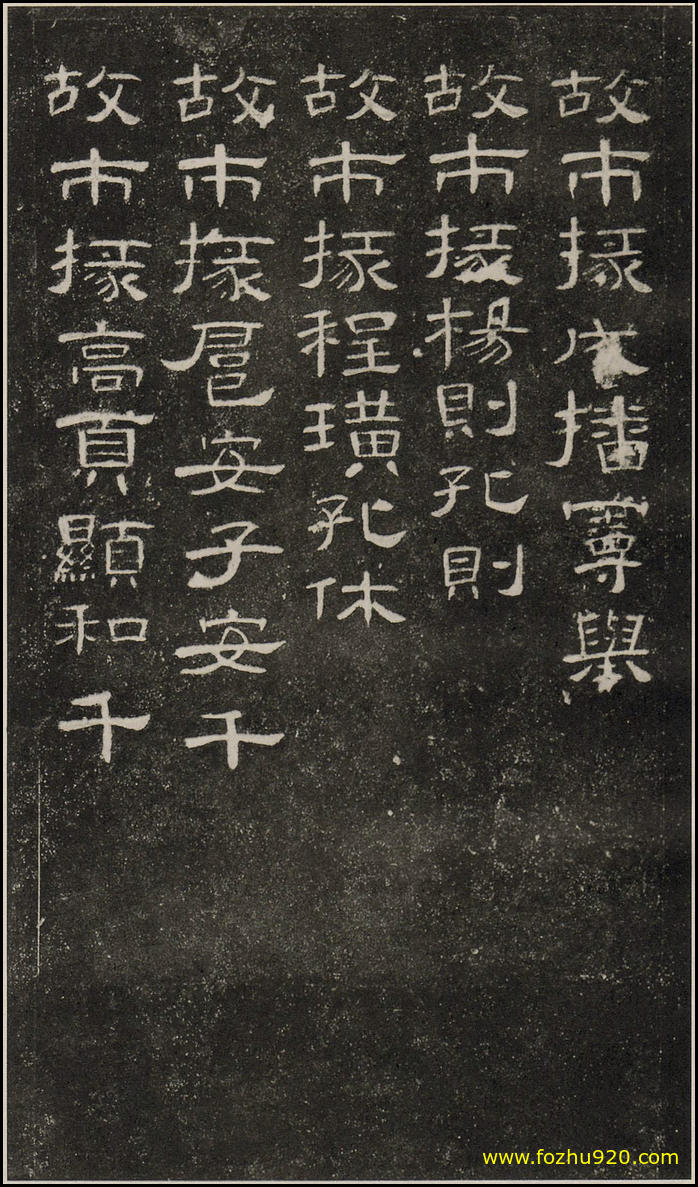 故市掾成播曼舉
故市掾楊則孔則
故市掾程璜孔休
故市掾扈安子安千
故市掾高頁顯和千
www.fozhu920.com